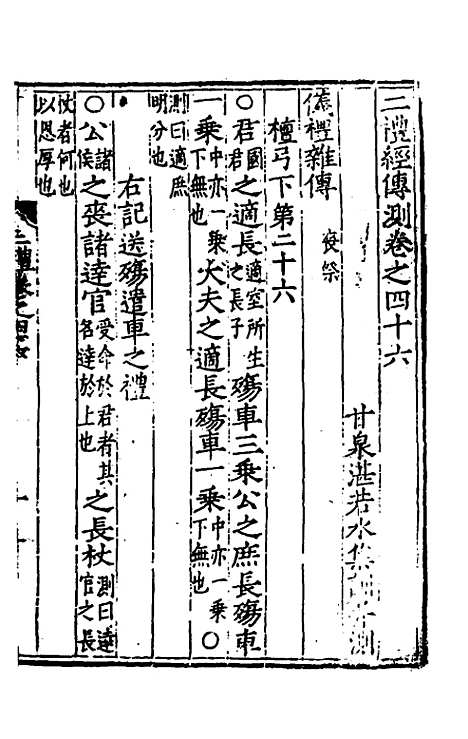 二禮經傳測卷之四十六
甘泉湛若水集 測
儀禮雜傳
喪祭
檀弓下第二十六
○君國君之適長適室所生之長子殤車三乘公之庶長殤車
一乘中亦一乘下無也大夫之適長殤車一乘中亦一乘下無也○
測曰適庶明分也
右記送殤遣車之禮
○公諸侯之喪諸達官受命於君者其名達於上也之長杖測曰達官之長
杖者何也以恩厚也